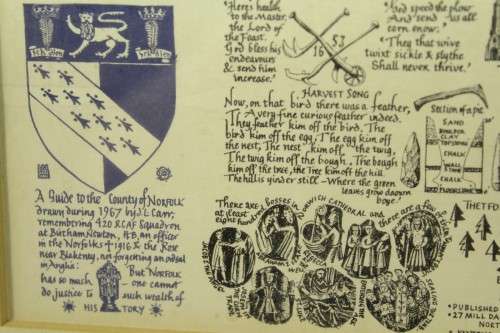 "Here's health
to the Master
the Lord of
the Feast.
God bless his
endeavours
& send him
increase."
16 53
And speed the plow
And send us all
corn enow."
"They that wive
twixt sickle & scythe
Shall never thrive."
HARVEST SONG
Now, on that bird there was a feather,
A very fine curious feather indeed.
They feather kim off the bird, The
bird kim off the egg, The egg kim off
the nest, The nest kim off the twig,
The twig kim off the bough. The bough
kim off the tree, the Tree kim off the hill
The hill is yinder still — Where the green
leaves grow down
boye.
Section of a pit
SAND
BOULDER
CLAY
TOPSTONE
CHALK
WALL STONE
CHALK
FLOORSTONE
A Guide to the County of NORFOLK
drawn during 1967 by J.L. Carr,
remembering 420 RCAF Squadron
at Bircham Newton, R.B, an officer
in the Norfolks † 1916 & the Rex
near Blakeney, not forgetting an ordeal
in Anglia.
But NORFOLK
has so much one cannot
do justice to such wealth of
HIS TORY
There are
at least
eight hundred
BOSSES in
NORWICH CATHEDRAL and
these are a few of them
THETFO
• PUBLISHED
• 27 MILL DA
NORT